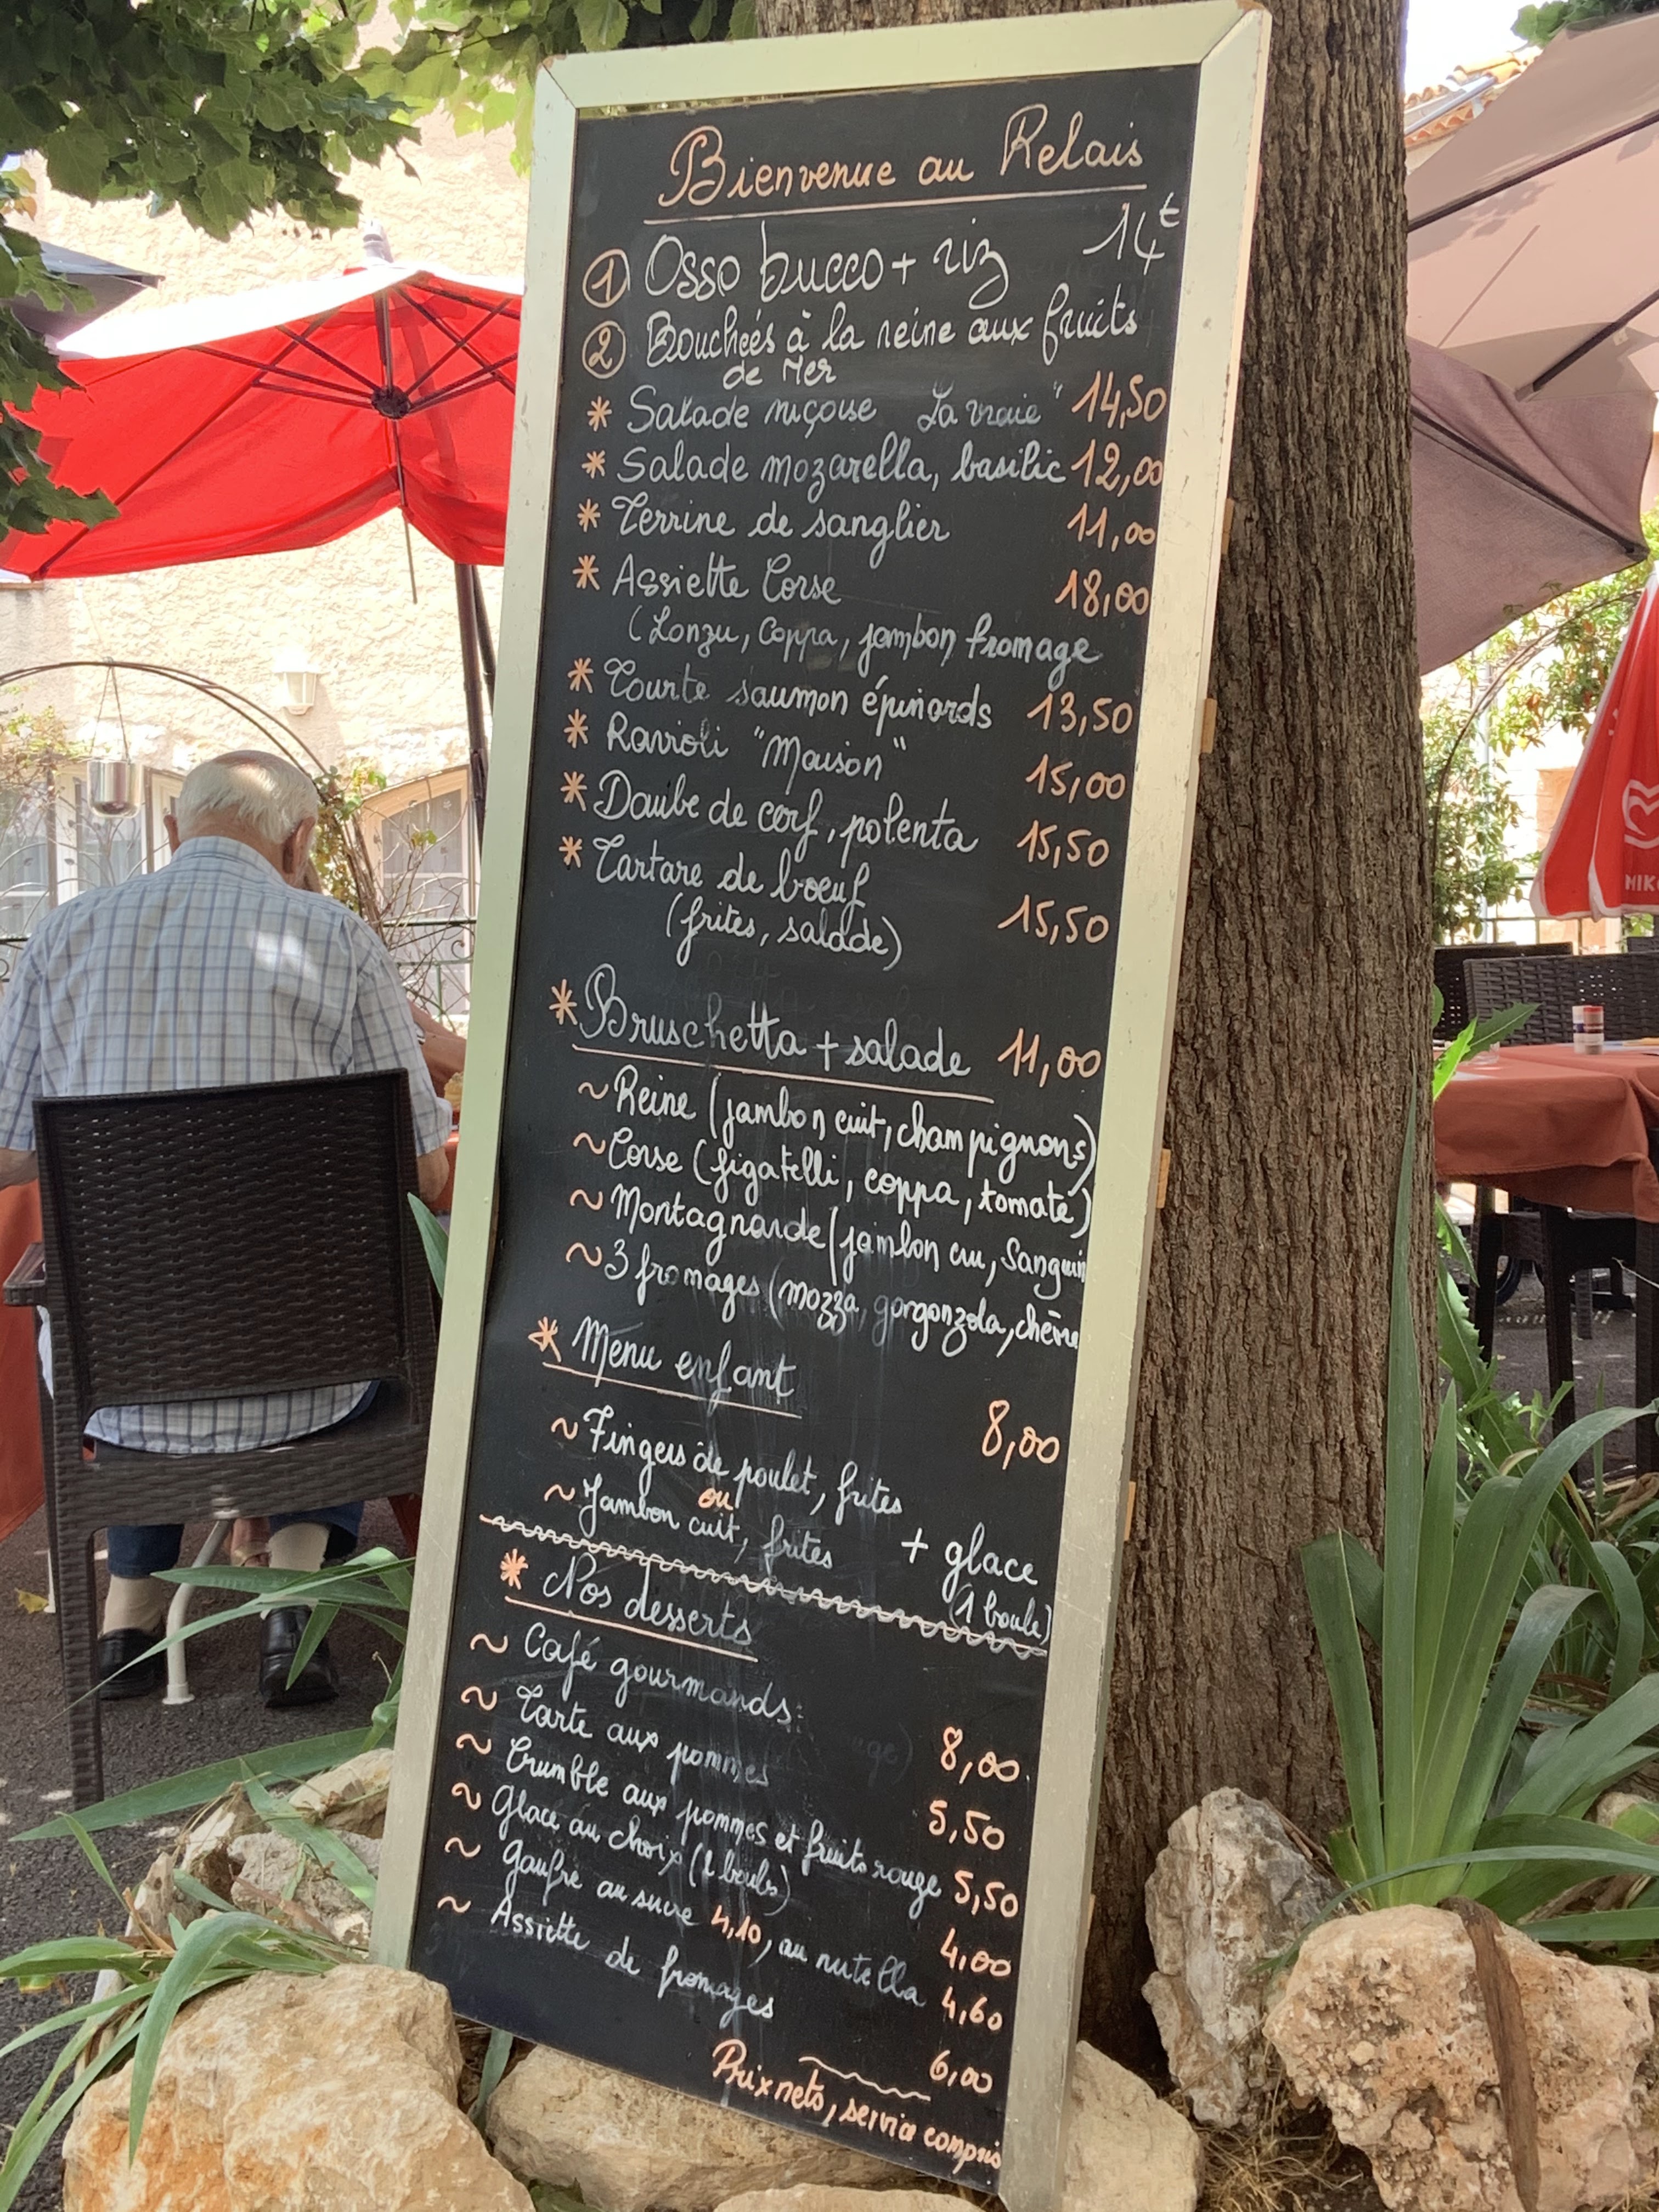 Bienvenue au Relais
1 Osso bucco + riz 14€
2 Bouchées à la reine aux fruits
de Mer
* Salade niçoise "La vraie" 14,50
* Salade mozarella, basilic 12,00
* Terrine de sanglier 11,00
* Assiette Corse 18,00
(Lonzu, coppa, jambon fromage
* Tourte saumon épinards 13,50
* Ravioli "Maison" 15,00
* Daube de cerf, polenta 15,50
* Tartare de boeuf 15,50
(frites, salade)
* Bruschetta + salade 11,00
~ Reine (jambon cuit, champignons)
~ Corse (figatelli, coppa, tomate)
~ Montagnarde (jambon cru, Sanguin
~ 3 fromages (mozza, gorgonzola, chèvre
* Menu enfant 8,00
~ Fingers de poulet, frites
ou
~ Jambon cuit, frites + glace
(1 boule)
* Nos desserts
~ Café gourmands: 8,00
~ Tarte aux pommes 5,50
~ Crumble aux pommes et fruits rouge 5,50
~ Glace au choix (2 boules) 4,00
~ Gaufre au sucre 4,10, au nutella 4,60
~ Assiette de fromages 6,00
Prix nets, service compris